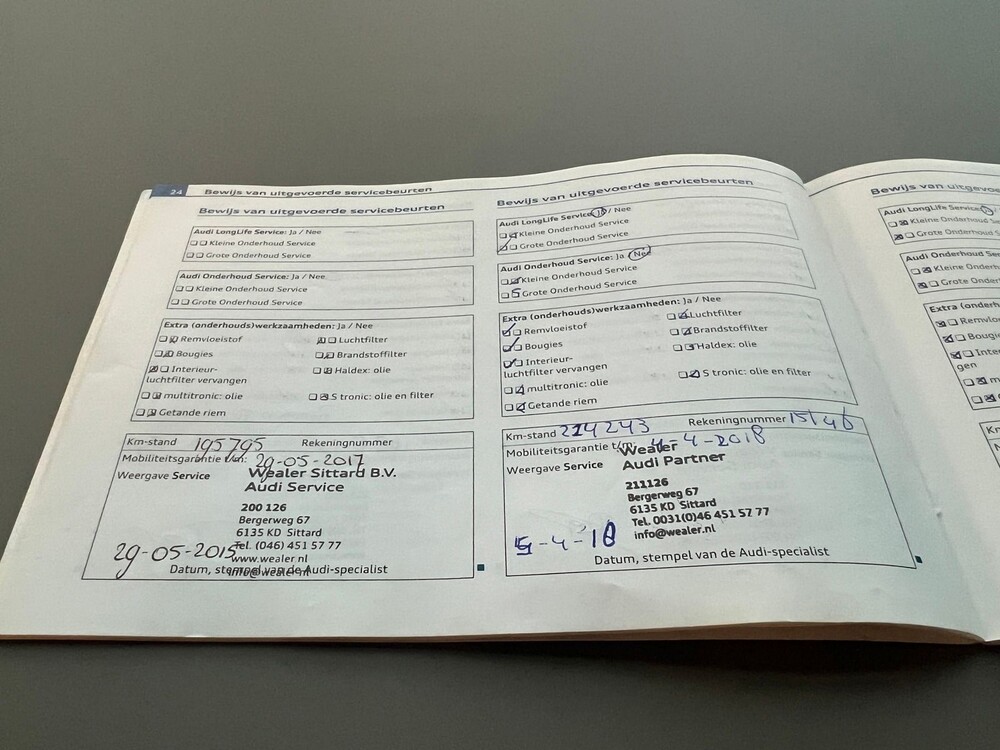 24 Bewijs van uitgevoerde servicebeurten
Bewijs van uitgevoerde servicebeurten
Audi LongLife Service: Ja / Nee
Kleine Onderhoud Service
Grote Onderhoud Service
Audi Onderhoud Service: Ja / Nee
Kleine Onderhoud Service
Grote Onderhoud Service
Extra (onderhouds)werkzaamheden: Ja / Nee
Remvloeistof
Luchtfilter
Bougies
Brandstoffilter
Interieur-
luchtfilter vervangen
Haldex: olie
multitronic: olie
S tronic: olie en filter
Getande riem
Km-stand 195795 Rekeningnummer
Mobiliteitsgarantie t/m: 29-05-2017
Weergave Service
Wealer Sittard B.V.
Audi Service
200 126
Bergerweg 67
6135 KD Sittard
Tel. (046) 451 57 77
www.wealer.nl
info@wealer.nl
29-05-2015
Datum, stempel van de Audi-specialist
Bewijs van uitgevoerde servicebeurten
Audi LongLife Service: Ja / Nee
Kleine Onderhoud Service
Grote Onderhoud Service
Audi Onderhoud Service: Ja Nee
Kleine Onderhoud Service
Grote Onderhoud Service
Extra (onderhouds)werkzaamheden: Ja / Nee
Remvloeistof
Luchtfilter
Bougies
Brandstoffilter
Interieur-
luchtfilter vervangen
Haldex: olie
multitronic: olie
S tronic: olie en filter
Getande riem
Km-stand 224243 Rekeningnummer
Mobiliteitsgarantie t/m: 4-4-2018
Weergave Service
Wealer
Audi Partner
211126
Bergerweg 67
6135 KD Sittard
Tel. 0031(0)46 451 57 77
info@wealer.nl
Datum, stempel van de Audi-specialist
Bewijs van uitgevoe
Audi LongLife Service:
Kleine Onderhoud
Grote Onderhoud S
Audi Onderhoud Ser
Kleine Onderhoud
Grote Onderhoud
Extra (onderh
Remvlo
Bougi
Inte
gen
m